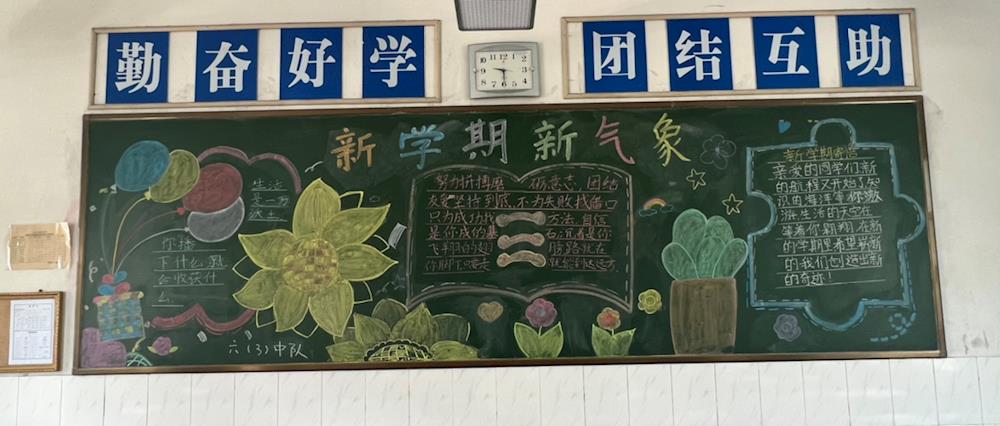 勤奋好学
团结互助
新学期新气象
生活
是一方
沃土
你播
下什么就
会收获什
么
六(3)中队
努力拼搏磨 砺意志,团结
友爱坚持到底,不为失败找借口
只为成功找 方法,自信
是你成的基 石,沉着是你
飞翔的翅 膀路就在
你脚下
就能到达远方
新学期寄语
亲爱的同学们,新
的航程又开始了知
识的海洋等你激
生活的天空在
等着你翱翔在新
的学期里希望新新
的我们创造出新
的奇迹!